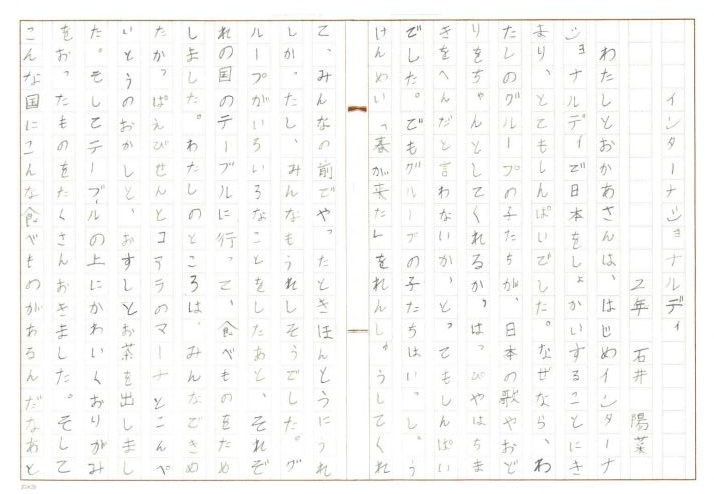 インターナショナルディ
２年 石井 陽菜
わたしとおかあさんは、はじめインターナ
ショナルディで日本をしょかいすることにき
まり、とてもしんぱいでした。なぜなら、わ
たしのグループの子たちが、日本の歌やおど
りをちゃんとしてくれるか、はっぴやはちま
きをへんだと言わないか、とってもしんぱい
でした。でもグループの子たちはいっしょう
けんめい「春が来た」をれんしゅうしてくれ
て、みんなの前でやったときほんとうにうれ
しかったし、みんなもうれしそうでした。グ
ループがいろいろなことをしたあと、それぞ
れの国のテーブルに行って、食べものをため
しました。わたしのところは、みんなできめ
たかっぱえびせんとコアラのマーチとこんペ
いとうのおかしと、おすしとお茶を出しまし
た。そしてテーブルの上にかわいくおりがみ
をおったものをたくさんおきました。そして
こんな国にこんな食べものがあるんだなあと